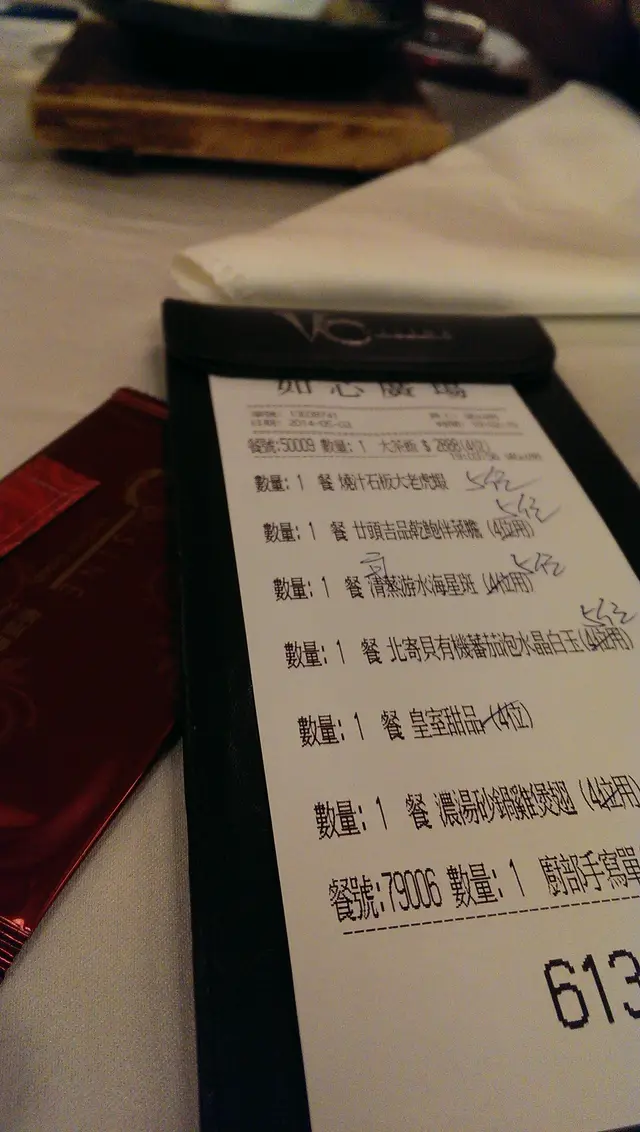 VC CUISINE
如心廣場
日期: 2014-05-03
餐號:50009 數量: 1 大茶飯 $ 2888(4位)
數量: 1 餐 燒汁石板大老虎蝦 5位
數量: 1 餐 廿頭吉品乾鮑伴菜膽 (4位用) 5位
數量: 1 餐 清蒸游水海星斑 (4位用) 5位
數量: 1 餐 北寄貝有機蕃茄泡水晶白玉(4位用) 5位
數量: 1 餐 皇室甜品 (4位)
數量: 1 餐 濃湯砂鍋雞煲翅 (4位用)
餐號:79006 數量: 1 廚部手寫單
613